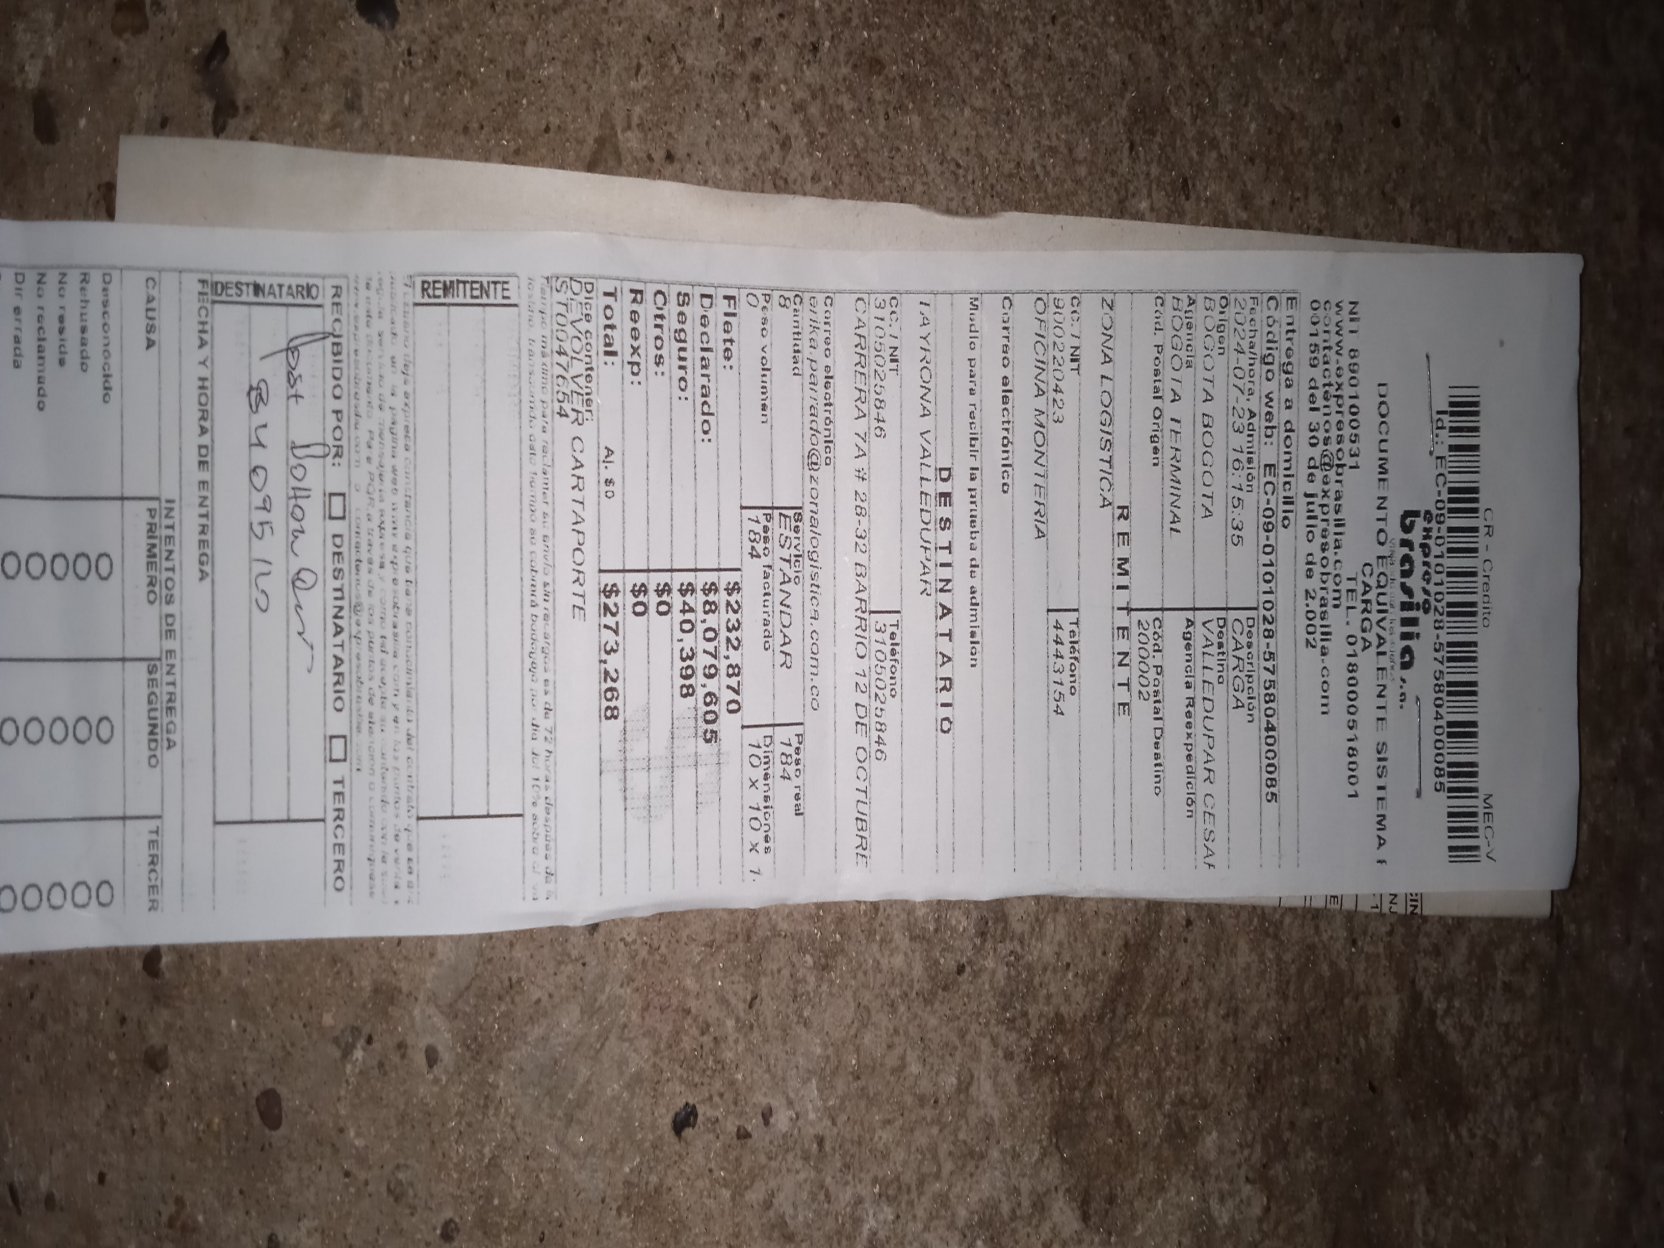 CR - Credito MEC-V
Id.: EC-09-0101028-5758040­0085
expreso
brasilia s.a.
DOCUMENTO EQUIVALENTE SISTEMA
CARGA
NIT 890100531 TEL. 018000518001
www.expresobrasilia.com
contactenos@expresobrasilia.com
00159 del 30 de julio de 2.002
Entrega a domicilio
Código web: EC-09-0101028-57580400085
Fecha/hora, Admisión Descripción
2024-07-23 16:15:35 CARGA
Origen Destino
BOGOTA BOGOTA VALLEDUPAR CESAR
Agencia Agencia Reexpedición
BOGOTA TERMINAL
Cód. Postal Origen Cód. Postal Destino
200002
REMITENTE
ZONA LOGISTICA
CC. / NIT Teléfono
900220423 4443154
OFICINA MONTERIA
Correo electrónico
Medio para recibir la prueba de admisión
DESTINATARIO
TAYRONA VALLEDUPAR
CC. / NIT Teléfono
3105025846 3105025846
CARRERA 7A # 28-32 BARRIO 12 DE OCTUBRE
Correo electrónico
erika.parrado@zonalogistica.com.co
Cantidad Servicio Peso real
8 ESTANDAR 184
Peso volumen Peso facturado Dimensiones
0 184 10 x 10 x 1.
Flete: $232,870
Declarado: $8,079,605
Seguro: $40,398
Otros: $0
Reexp: $0
Total: Aj. $0 $273,268
Dice contener:
DEVOLVER CARTAPORTE
ST0047654
REMITENTE
RECIBIDO POR: DESTINATARIO TERCERO
DESTINATARIO
FECHA Y HORA DE ENTREGA
INTENTOS DE ENTREGA
CAUSA PRIMERO SEGUNDO TERCER
Desconocido
Rehusado
No reside
No reclamado
Dir errada